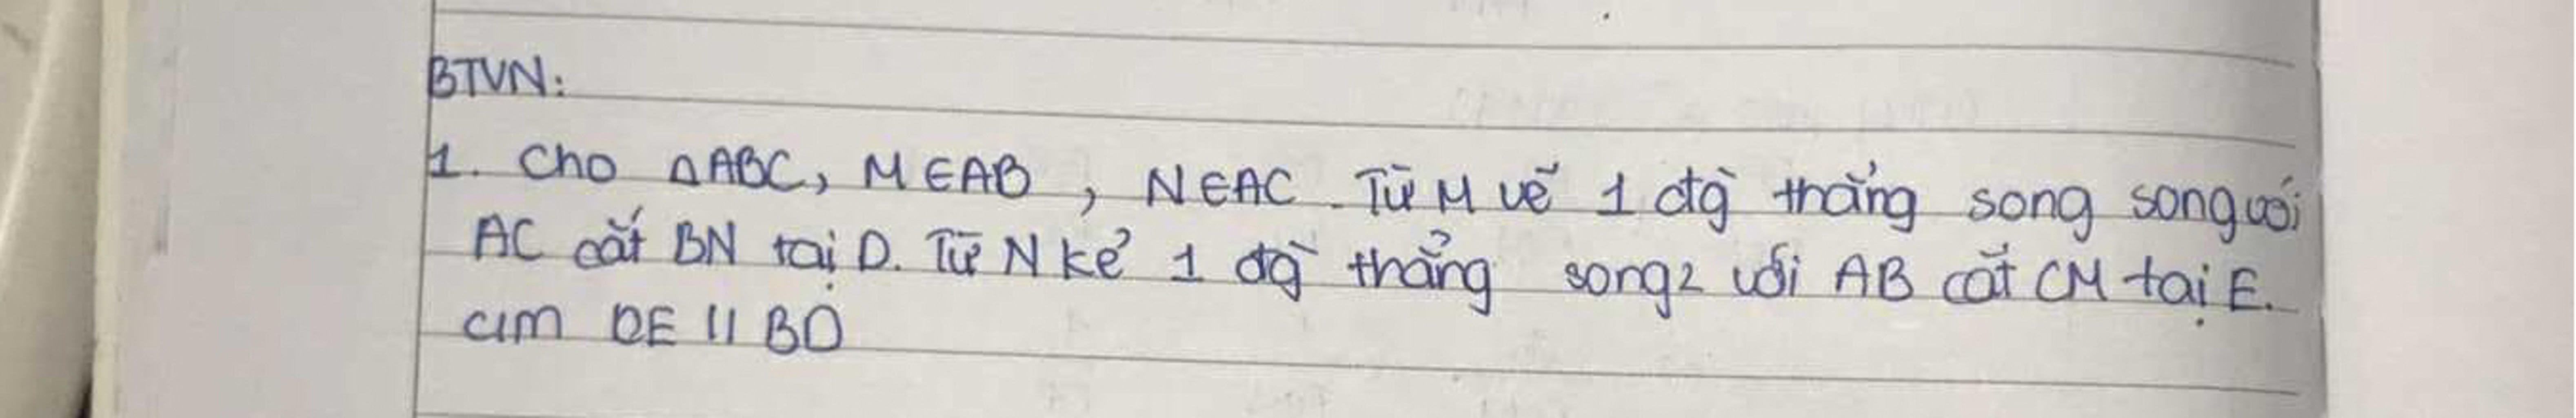 BTVN:
1. Cho ΔABC, M∈AB, N∈AC. Từ M vẽ 1 đg̀ thẳng song song với
AC cắt BN tại D. Từ N kẻ 1 đg̀ thẳng song2 với AB cắt CM tại E.
cm DE // BD